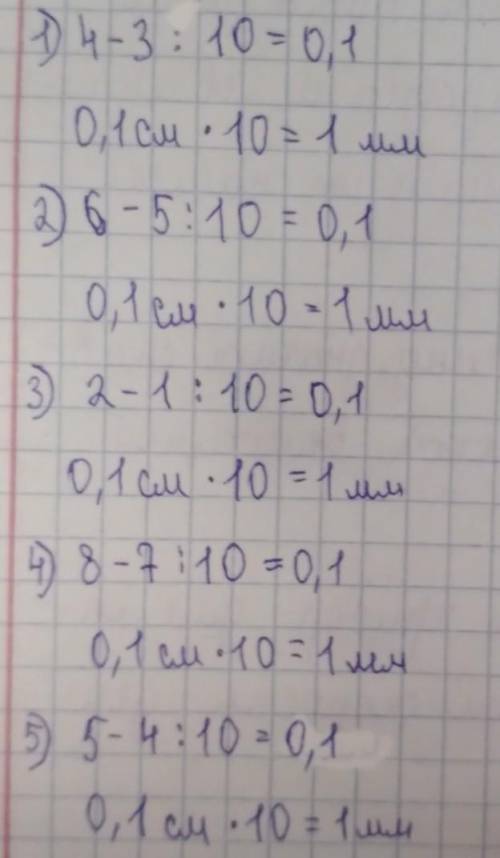 1) 4 - 3 : 10 = 0,1
0,1 см · 10 = 1 мм
2) 6 - 5 : 10 = 0,1
0,1 см · 10 = 1 мм
3) 2 - 1 : 10 = 0,1
0,1 см · 10 = 1 мм
4) 8 - 7 : 10 = 0,1
0,1 см · 10 = 1 мм
5) 5 - 4 : 10 = 0,1
0,1 см · 10 = 1 мм